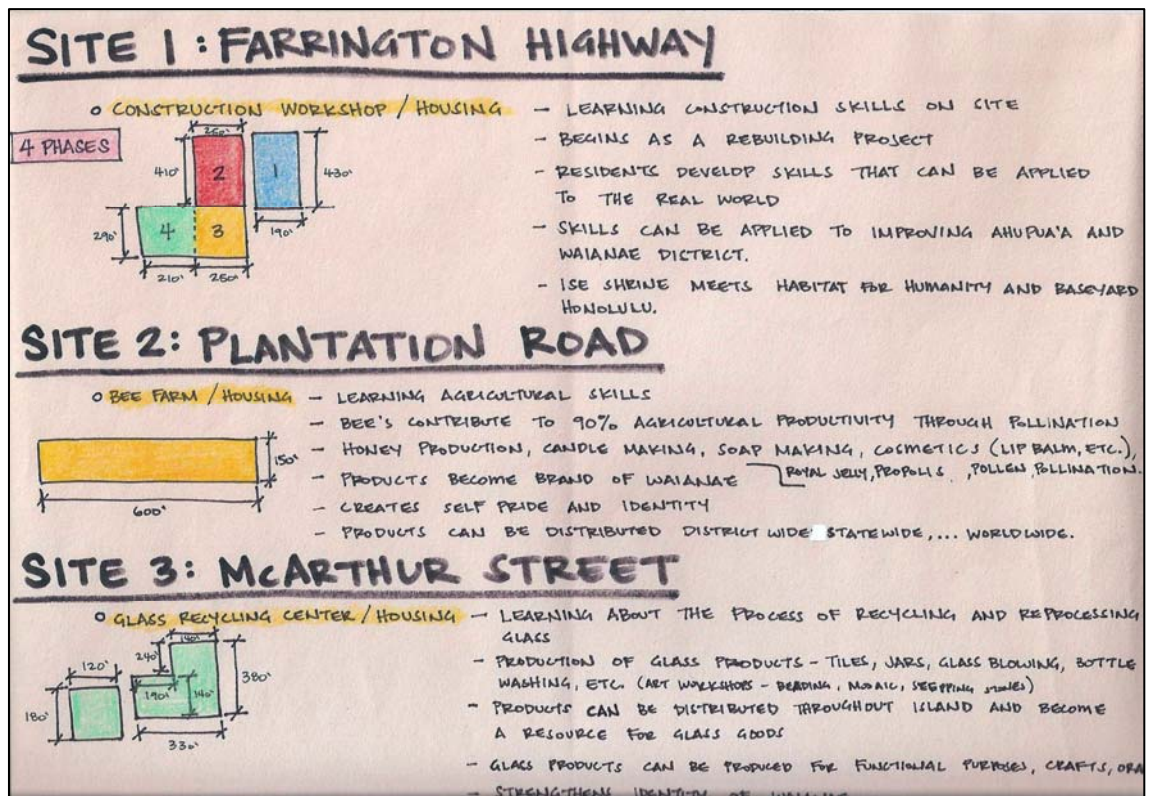 SITE 1: FARRINGTON HIGHWAY
CONSTRUCTION WORKSHOP / HOUSING
4 PHASES
260'
410'
2
1
430'
190'
290'
4
3
210'
250'
- LEARNING CONSTRUCTION SKILLS ON SITE
- BEGINS AS A REBUILDING PROJECT
- RESIDENTS DEVELOP SKILLS THAT CAN BE APPLIED
TO THE REAL WORLD
- SKILLS CAN BE APPLIED TO IMPROVING AHUPUA'A AND
WAIANAE DISTRICT.
- ISE SHRINE MEETS HABITAT FOR HUMANITY AND BASEYARD
HONOLULU.
SITE 2: PLANTATION ROAD
BEE FARM / HOUSING
- LEARNING AGRICULTURAL SKILLS
- BEE'S CONTRIBUTE TO 90% AGRICULTURAL PRODUCTIVITY THROUGH POLLINATION
- HONEY PRODUCTION, CANDLE MAKING, SOAP MAKING, COSMETICS (LIP BALM, ETC.),
ROYAL JELLY, PROPOLIS, POLLEN, POLLINATION.
- PRODUCTS BECOME BRAND OF WAIANAE
- CREATES SELF PRIDE AND IDENTITY
- PRODUCTS CAN BE DISTRIBUTED DISTRICT WIDE STATEWIDE,... WORLDWIDE.
150'
600'
SITE 3: McARTHUR STREET
GLASS RECYCLING CENTER / HOUSING
140'
240'
120'
380'
190'
140'
180'
330'
- LEARNING ABOUT THE PROCESS OF RECYCLING AND REPROCESSING
GLASS
- PRODUCTION OF GLASS PRODUCTS - TILES, JARS, GLASS BLOWING, BOTTLE
WASHING, ETC. (ART WORKSHOPS - BEADING, MOSAIC, STEPPING STONES)
- PRODUCTS CAN BE DISTRIBUTED THROUGHOUT ISLAND AND BECOME
A RESOURCE FOR GLASS GOODS
- GLASS PRODUCTS CAN BE PRODUCED FOR FUNCTIONAL PURPOSES, CRAFTS,
- STRENGTHENS IDENTITY OF WAIANAE